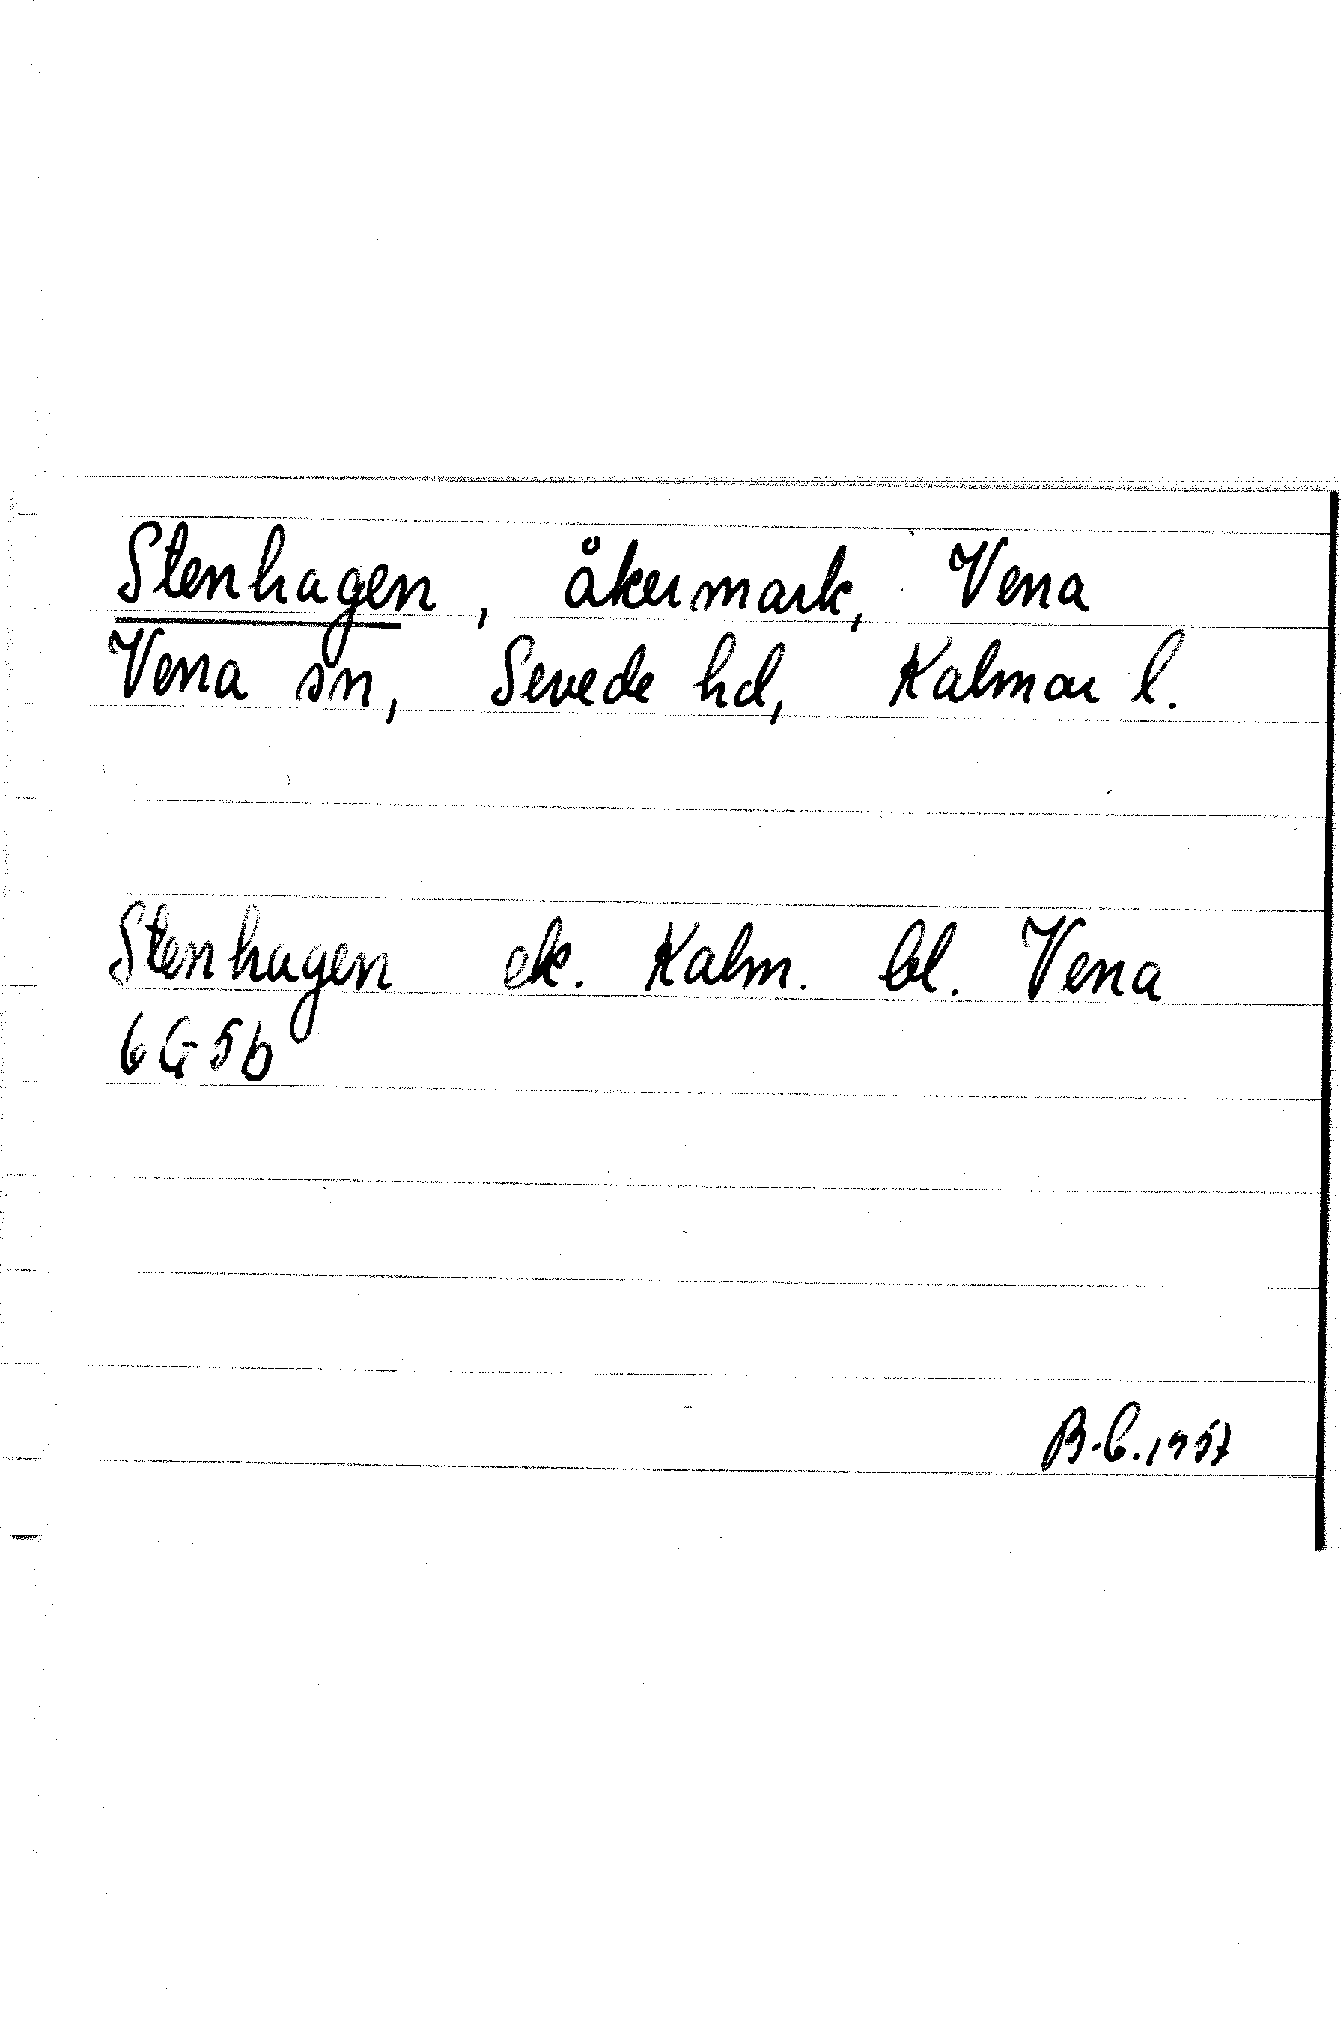 Stenhagen, åkermark, Vena
Vena sn, Sevede hd, Kalmar l.
Stenhagen ek. Kalm. bl. Vena
6G5b
B.C.1957